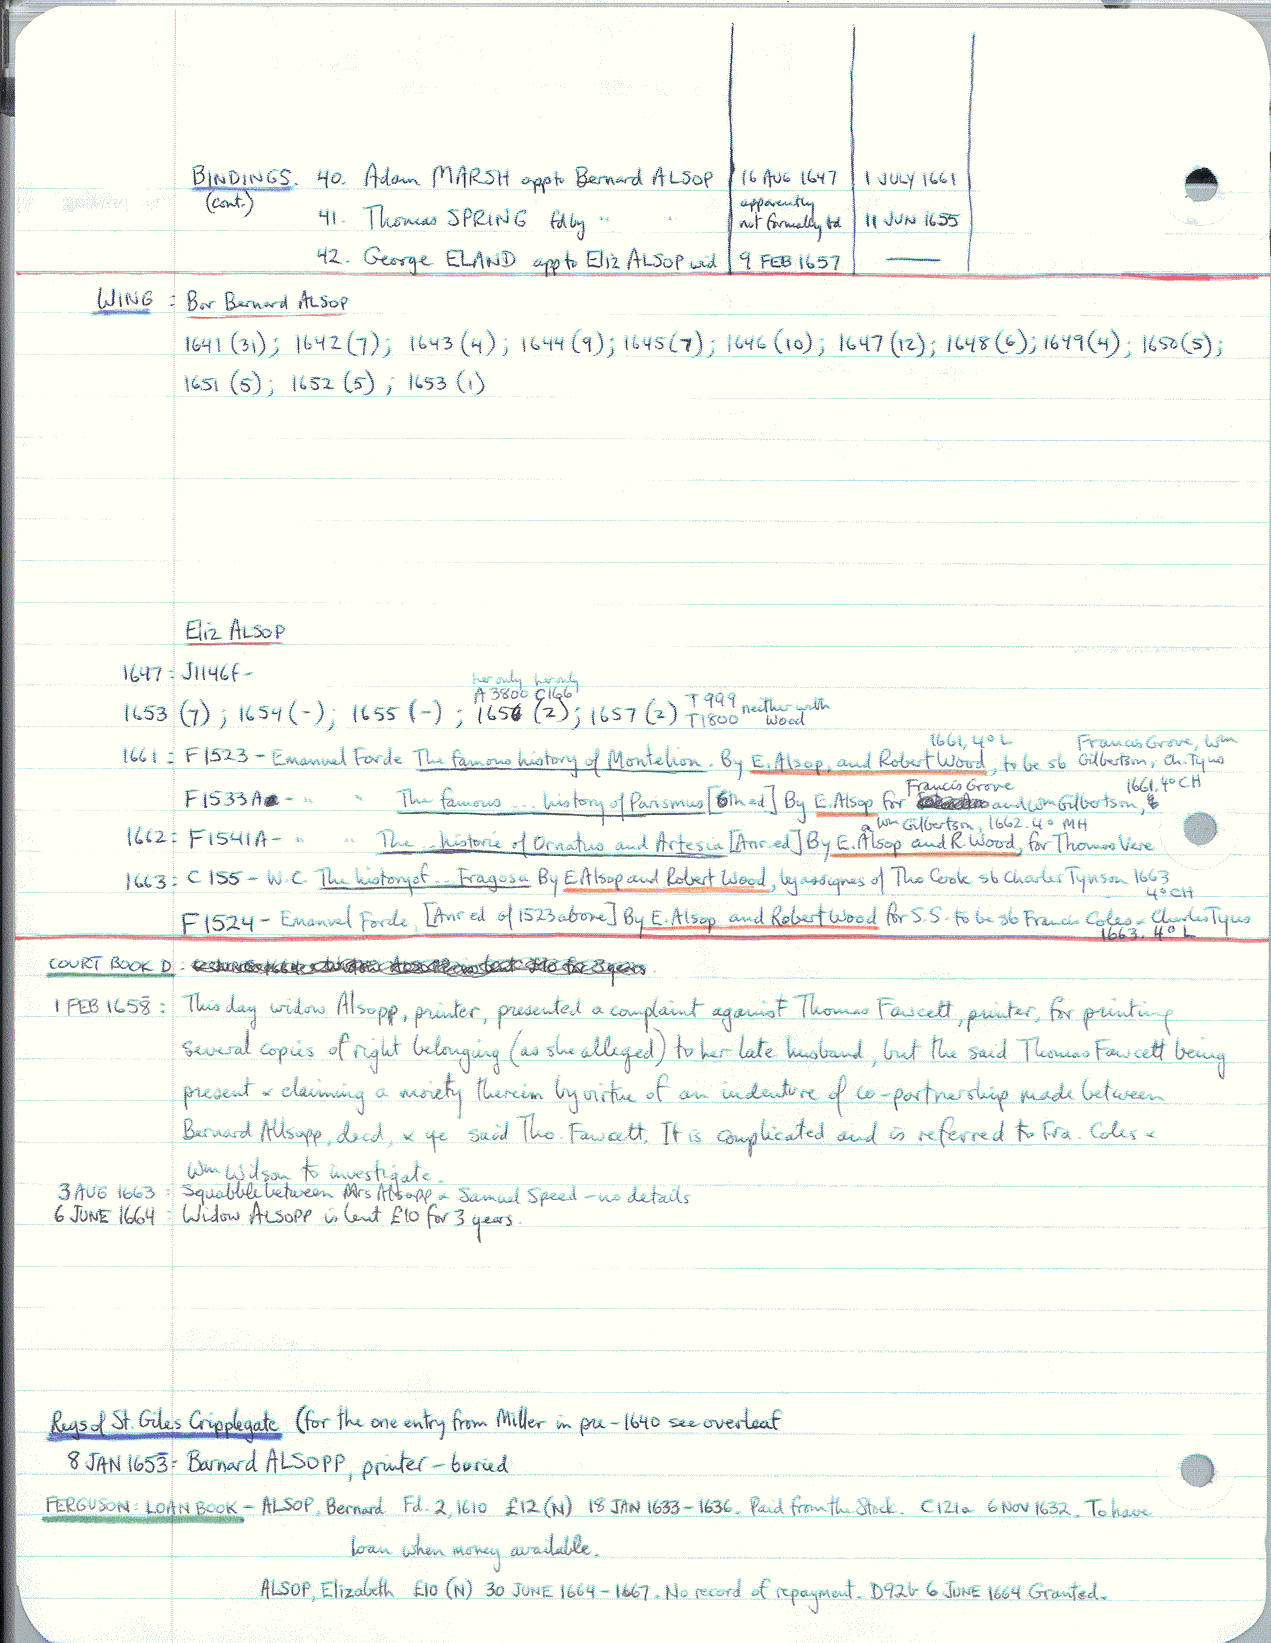 BINDINGS. 40. Adam MARSH app to Bernard ALSOP 16 AUG 1647 1 JULY 1661
(cont.) 41. Thomas SPRING fd by " " apparently not formally bd 11 JUN 1655
42. George ELAND app to Eliz ALSOP wid 9 FEB 1657 ——
WING : Bar Bernard ALSOP
1641 (31); 1642 (7); 1643 (4); 1644 (9); 1645 (7); 1646 (10); 1647 (12); 1648 (6); 1649 (4); 1650 (5);
1651 (5); 1652 (5); 1653 (1)
Eliz ALSOP
1647 : J1146f -
her only her only
A3800 C166
1653 (7); 1654 (-); 1655 (-); 1656 (2); 1657 (2) T999 T1800 neither with Wood
1661, 4o L Francis Grove, Wm
1661 : F1523 - Emanuel Forde The famous history of Montelion. By E. Alsop, and Robert Wood, to be sb Gilbertson, Ch. Tyus
Francis Grove 1661, 4o CH
F1533A - " " The famous ... history of Parismus [6th ed] By E. Alsop for and Wm Gilbertson, &
Wm Gilbertson, 1662. 4o MH
1662 : F1541A - " " The ... historie of Ornatus and Artesia [Anr. ed] By E. Alsop and R. Wood, for Thomas Vere
1663 : C155 - W.C. The history of ... Fragosa By E Alsop and Robert Wood, by assignes of Tho Cook sb Charles Tynson 1663
4o CH
F1524 - Emanuel Forde, [Anr ed of 1523 above] By E. Alsop and Robert Wood for S.S. to be sb Francis Coles & Charles Tyus
1663. 4o L
COURT BOOK D :
1 FEB 1658 : This day widow Alsopp, printer, presented a complaint against Thomas Fawcett, printer, for printing
several copies of right belonging (as she alleged) to her late husband, but the said Thomas Fawcett being
present & claiming a moiety therein by virtue of an indenture of co-partnership made between
Bernard Allsopp, decd, & ye said Tho. Fawcett. It is complicated and is referred to Fra. Coles &
Wm Wilson to investigate.
3 AUG 1663 : Squabble between Mrs Alsopp & Samuel Speed - no details
6 JUNE 1664 : Widow ALSOPP is lent £10 for 3 years.
Regs of St. Giles Cripplegate (for the one entry from Miller in pre-1640 see overleaf
8 JAN 1653 - Barnard ALSOPP, printer - buried
FERGUSON: LOAN BOOK - ALSOP, Bernard Fd. 2, 1610 £12 (N) 18 JAN 1633 - 1636. Paid from the Stock. C121a 6 NOV 1632. To have
loan when money available.
ALSOP, Elizabeth £10 (N) 30 JUNE 1664 - 1667. No record of repayment. D92b 6 JUNE 1664 Granted.